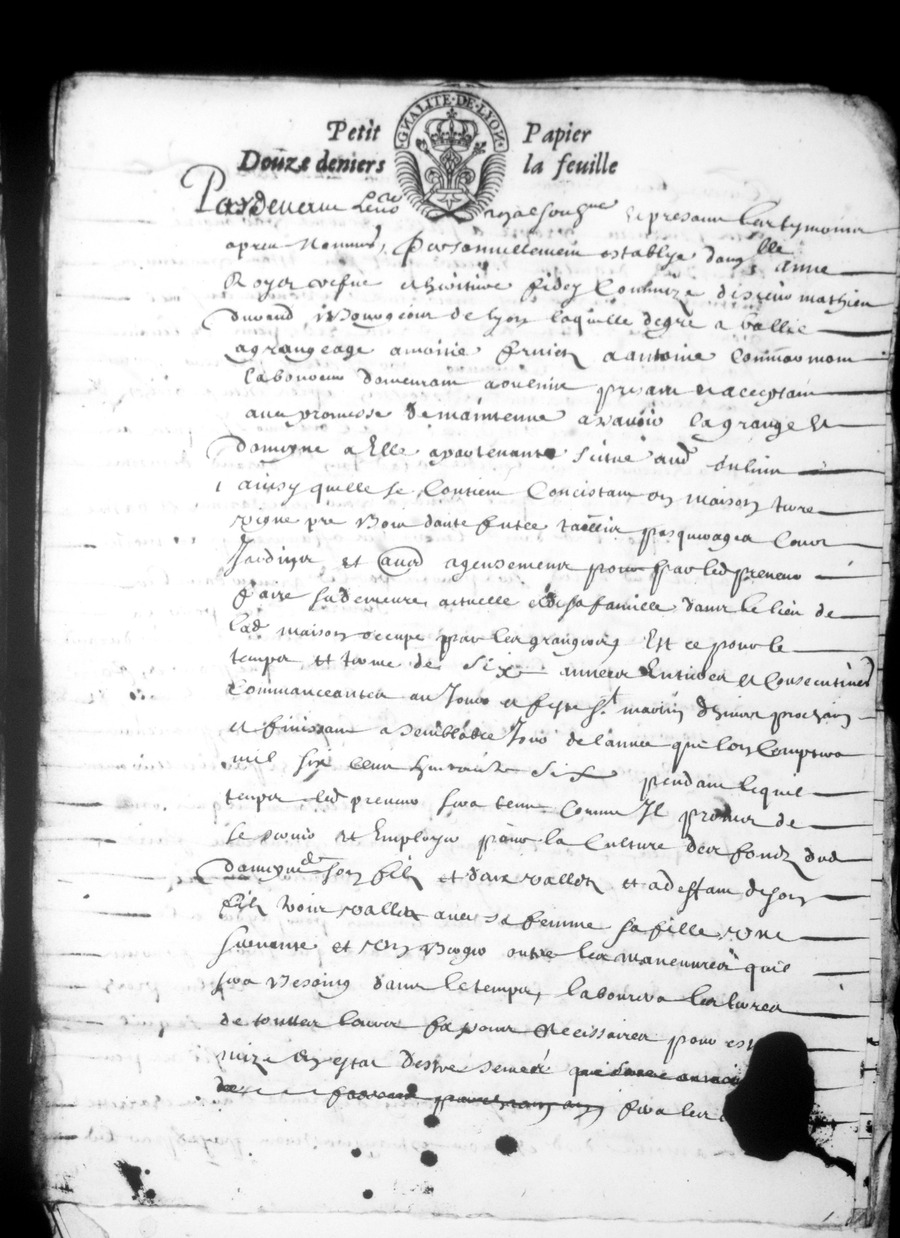 GNALITE·DE·LYON
Petit Papier
Doûze deniers la feuille
Pardevant le no.re royal soub.ne et presant les tymoins
apres Nommés, personnellement establye dam.lle anne
Royer vefve et heritiere fidey Commize de sieur mathieu
durand Bourgeois de Lyon laquelle de gré a baillé
a grangeage a moitié fruictz a antoine
laboureur demeurant a presant et acceptant
avec promesse de maintenue assavoir la grange et
domayne a Elle appartenante scitué aud
ainsy quelle se Contient Concistant en maison terre
vigne pre Bois taillis pasquerages Cour
Jardins et aud agensement pour par led preneur
faire sa demeure actuelle et de sa famille dans le lieu de
lad maison occupé par les grangiers Est ce pour le
temps et terme de six annees Entieres et Consecutives
Commanceantes au Jour et feste S.t martin d'hiver prochain
et finissant a semblable Jour de l'année que l'on Comptera
mil six cent six pendant lequel
temps led preneur sera tenu Comme Il promet de
se servir et Employer pour la Culture des fondz dud
domayne de son filz et deux valletz et a deffaut de son
filz trois valletz avec sa femme sa fille une
servante et son Berger outre les maneuvres quil
sera Besoing dans le temps, labourera les terres
de touttes leurs façons Necessaires pour est
mize En estat d'estre semée
fera les